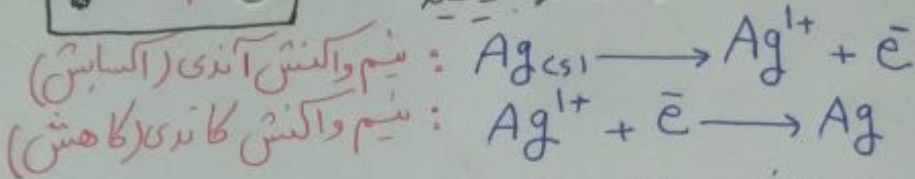 نیم واکنش آندی (اکسایش) : Ag(s) → Ag¹⁺ + ē
نیم واکنش کاتدی (کاهش) : Ag¹⁺ + ē → Ag